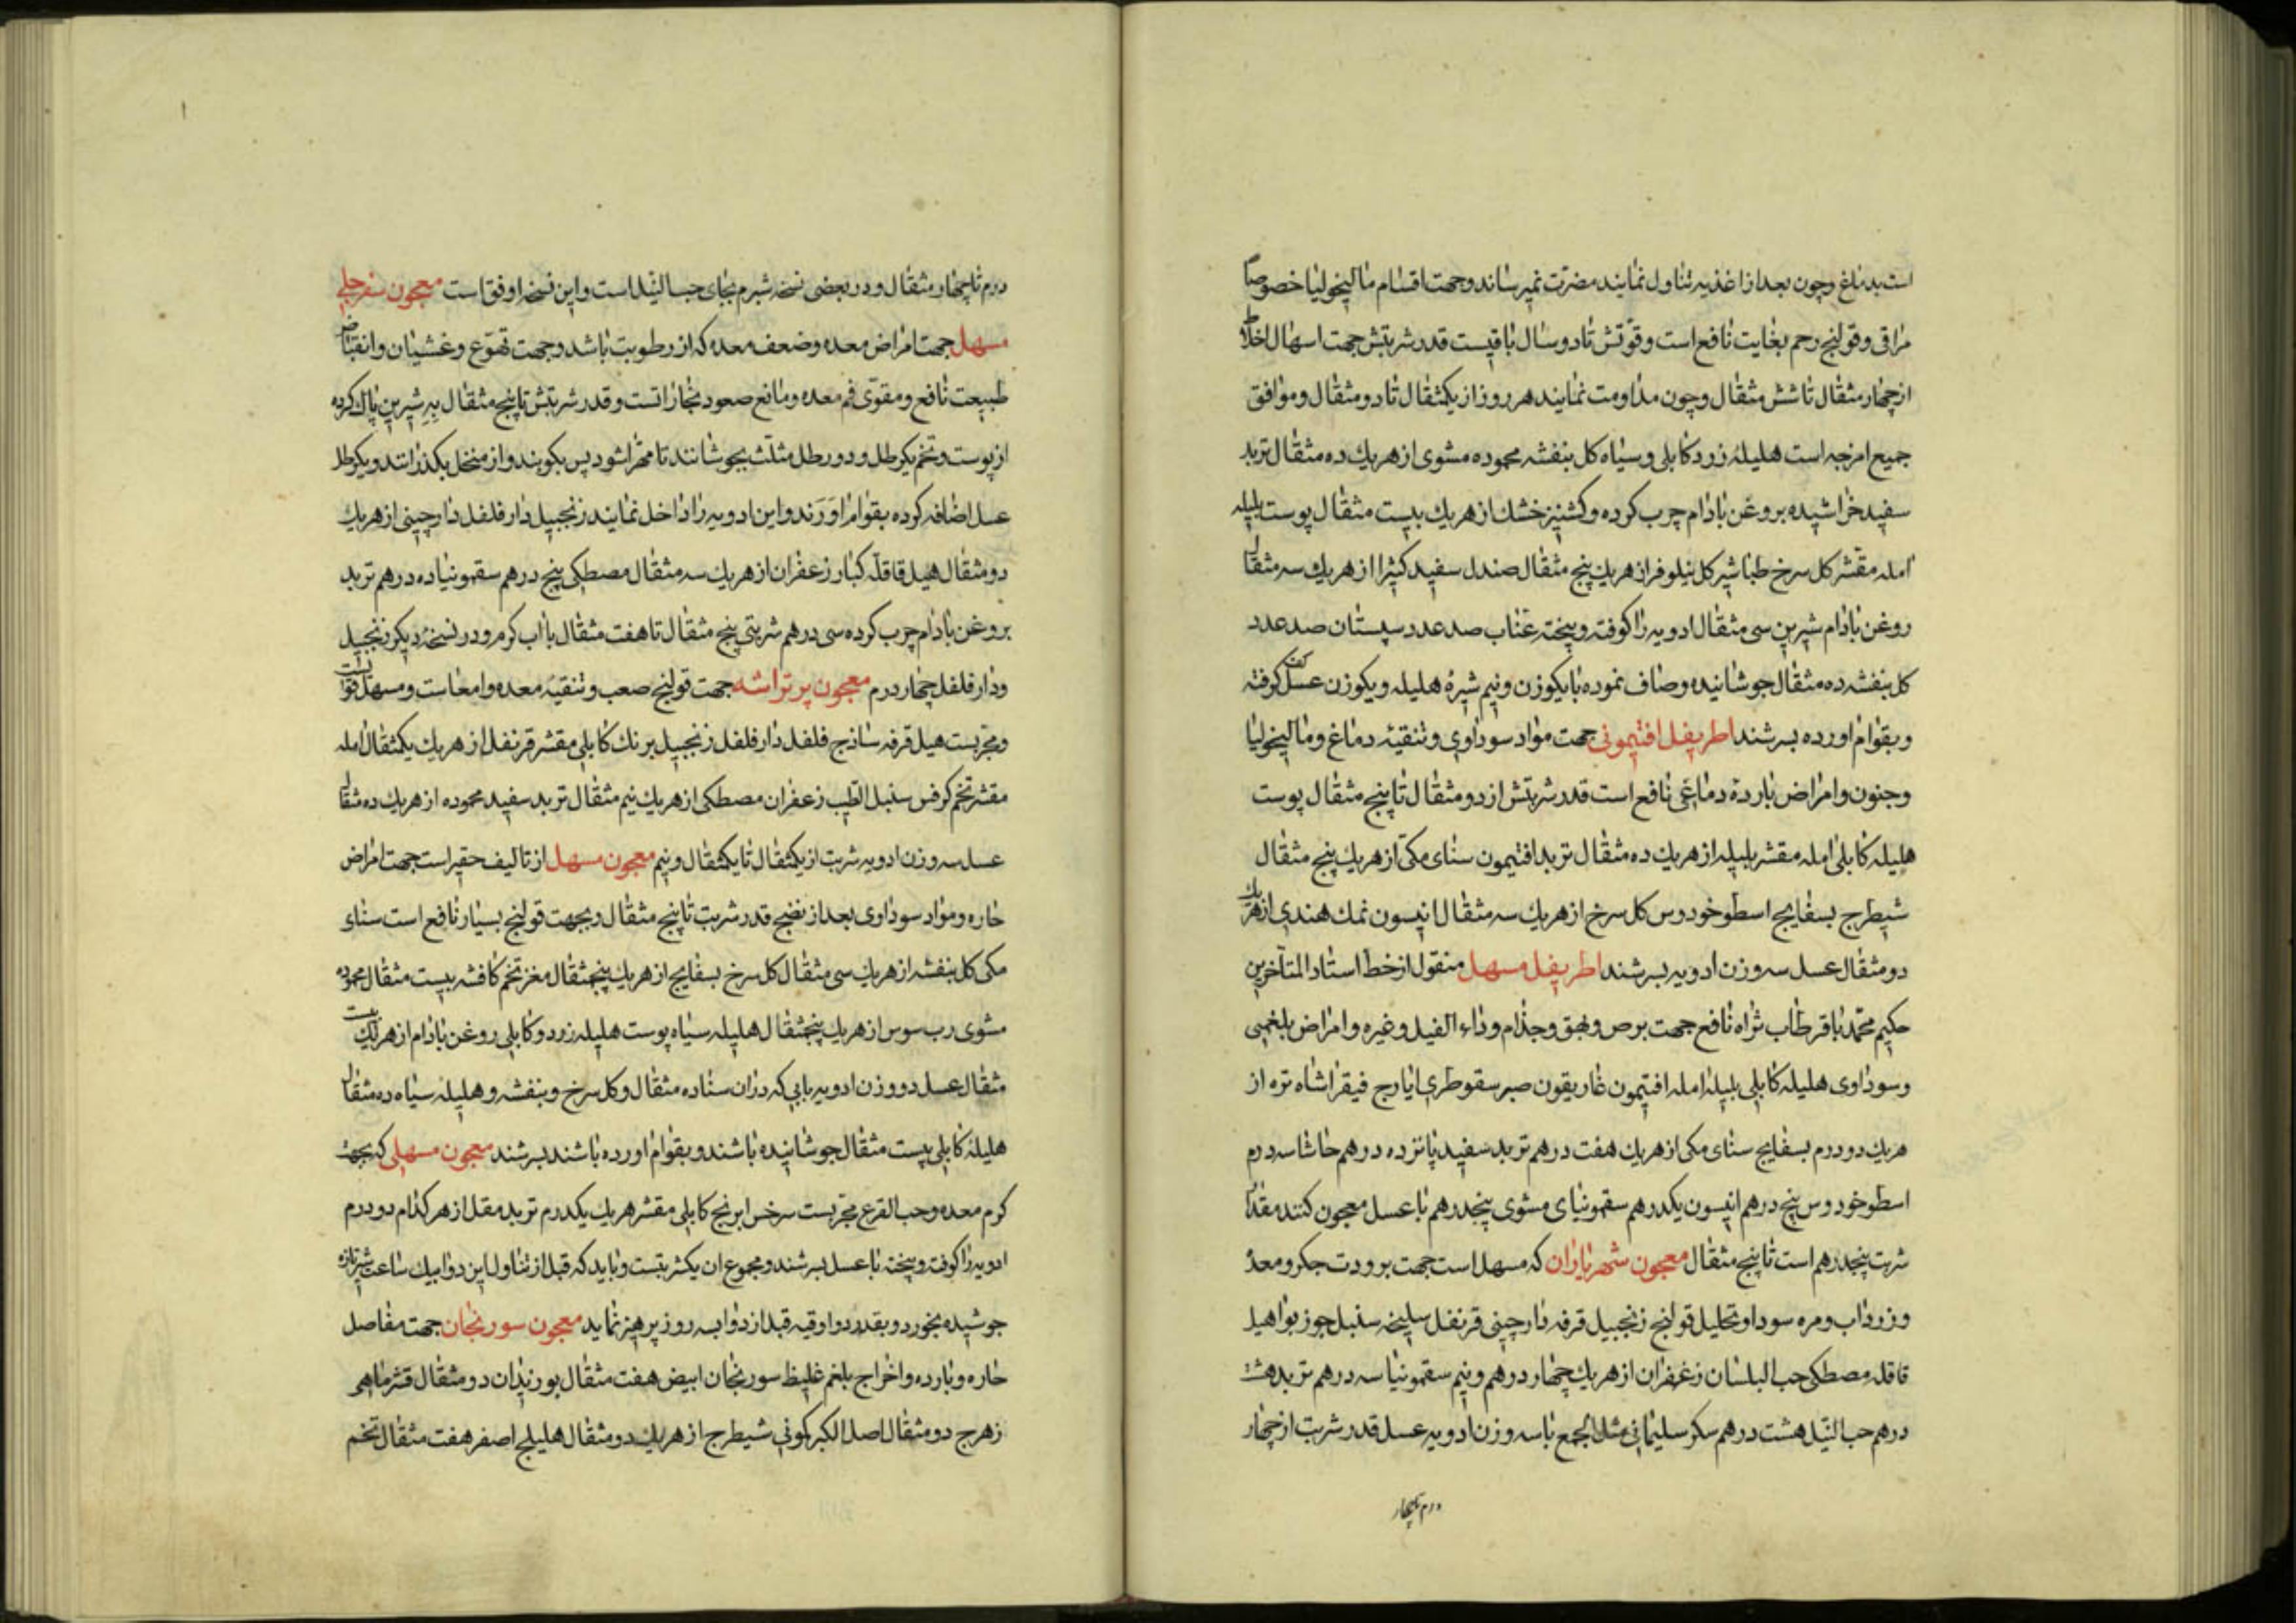 است بدماغ وچون بعد از اغذیه تناول نمایند مضرت نمیرساند وجهت اقسام مالیخولیا خصوصا
مراقی وقولنج رحم بغایت نافع است وقوّتش تا دو سال باقیست قدر شربتش جهت اسهال اخلاط
از چهار مثقال تا شش مثقال وچون مداومت نمایند هر روز از یکمثقال تا دو مثقال وموافق
جمیع امزجه است هلیلهٔ زرد کابلی وسیاه کل بنفشه محموده مشوی از هریك ده مثقال تربد
سفید خراشیده بروغن بادام چرب کرده وکشنیز خشك از هریك بیست مثقال پوست بلیله
امله مقشر کل سرخ طباشیر کل نیلوفر از هریك پنج مثقال صندل سفید کثیرا از هریك سه مثقال
روغن بادام شیرین سی مثقال ادویه را کوفته وبیخته عناب صد عدد سپستان صد عدد
کل بنفشه ده مثقال جوشانیده وصاف نموده با یکوزن ونیم شیرهٔ هلیله ویکوزن عسل کف کرفته
وبقوام اورده بسرشند اطریفل افتیمونی جهت مواد سوداوی وتنقیهٔ دماغ ومالیخولیا
وجنون وامراض باردهٔ دماغی نافع است قدر شربتش از دو مثقال تا پنج مثقال پوست
هلیله کابلی امله مقشر بلیله از هریك ده مثقال تربد افتیمون سنای مکی از هریك پنج مثقال
شیطرج بسفایج اسطوخودوس کل سرخ از هریك سه مثقال انیسون نمك هندی از هریك
دو مثقال عسل سه وزن ادویه بسرشند اطریفل مسهل منقول از خط استاد المتأخرین
حکیم محمّد باقر طاب ثراه نافع جهت برص وبهق وجذام وداء الفیل وغیره وامراض بلغمی
وسوداوی هلیله کابلی بلیله امله افتیمون غاریقون صبر سقوطری ایارج فیقرا شاه تره از
هریك دو درم بسفایج سنای مکی از هریك هفت درهم تربد سفید پانزده درهم حاشا سه درم
اسطوخودوس پنج درهم انیسون یکدرهم سقمونیای مشوی پنجدرهم با عسل معجون کنند مقدار
شربت پنجدرهم است تا پنج مثقال معجون شهریاران که مسهل است جهت برودت جکر ومعده
وزرداب ومره سودا وتحلیل قولنج زنجبیل قرفه دارچینی قرنفل سلیخه سنبل جوز بوا هیل
قاقله مصطکی حب البلسان زعفران از هریك چهار درهم ونیم سقمونیا سه درهم تربد هشت
درهم حب النیل هشت درهم سکر سلیمانی مثل الجمع با سه وزن ادویه عسل قدر شربت از چهار
درم تا چهار
درم تا چهار مثقال ودر بعضی نسخه شبرم بجای حب النیل است واین نسخه اوفق است معجون سفرجلی
مسهل جهت امراض معده وضعف معده که از رطوبت باشد وجهت تهوّع وغشیان وانقباض
طبیعت نافع ومقوّی فم معده ومانع صعود بخارات است وقدر شربتش تا پنج مثقال بِهِ شیرین پاك کرده
از پوست وتخم یکرطل ودو رطل مثلث بجوشانند تا مهرا شود پس بکوبند واز منخل بکذرانند ویکرطل
عسل اضافه کرده بقوام اورند واین ادویه را داخل نمایند زنجبیل دار فلفل دارچینی از هریك
دو مثقال هیل قاقلّه کبار زعفران از هریك سه مثقال مصطکی پنج درهم سقمونیا ده درهم تربد
بروغن بادام چرب کرده سی درهم شربتی پنج مثقال تا هفت مثقال با آب کرم ودر نسخهٔ دیکر زنجبیل
ودار فلفل چهار درم معجون پرتراشه جهت قولنج صعب وتنقیهٔ معده وامعاست ومسهل قوی است
ومجربست هیل قرفه ساذج فلفل دار فلفل زنجبیل برنك کابلی مقشر قرنفل از هریك یکمثقال امله
مقشر تخم کرفس سنبل الطیب زعفران مصطکی از هریك نیم مثقال تربد سفید محموده از هریك ده مثقال
عسل سه وزن ادویه شربت از یکمثقال تا یکمثقال ونیم معجون مسهل از تالیف حقیر است جهت امراض
حاره ومواد سوداوی بعد از نضج قدر شربت تا پنج مثقال وبجهت قولنج بسیار نافع است سنای
مکی کل بنفشه از هریك سی مثقال کل سرخ بسفایج از هریك پنجمثقال مغز تخم کافشه بیست مثقال محموده
مشوی رب سوس از هریك پنجمثقال هلیله سیاه پوست هلیله زرد وکابلی روغن بادام از هریك بیست
مثقال عسل دو وزن ادویه بابی که دران سنا ده مثقال وکل سرخ وبنفشه وهلیله سیاه ده مثقال
هلیلهٔ کابلی بیست مثقال جوشانیده باشند وبقوام اورده باشند بسرشند معجون مسهلی که بجهت
کرم معده وحب القرع مجربست سرخس ابرنج کابلی مقشر هریك یکدرم تربد مقل از هر کدام دو درم
ادویه را کوفته وبیخته با عسل بسرشند ومجموع ان یکشربتست وباید که قبل از تناول این دوا بیك ساعت شیر تازه
جوشیده بخورد وبقدر دو اوقیه قبل از دوا بسه روز پرهیز نماید معجون سورنجان جهت مفاصل
حاره وبارده واخراج بلغم غلیظ سورنجان ابیض هفت مثقال بوزیدان دو مثقال قشر ماهی
زهرج دو مثقال اصل الکبر کمونی شیطرج از هریك دو مثقال هلیلج اصفر هفت مثقال تخم